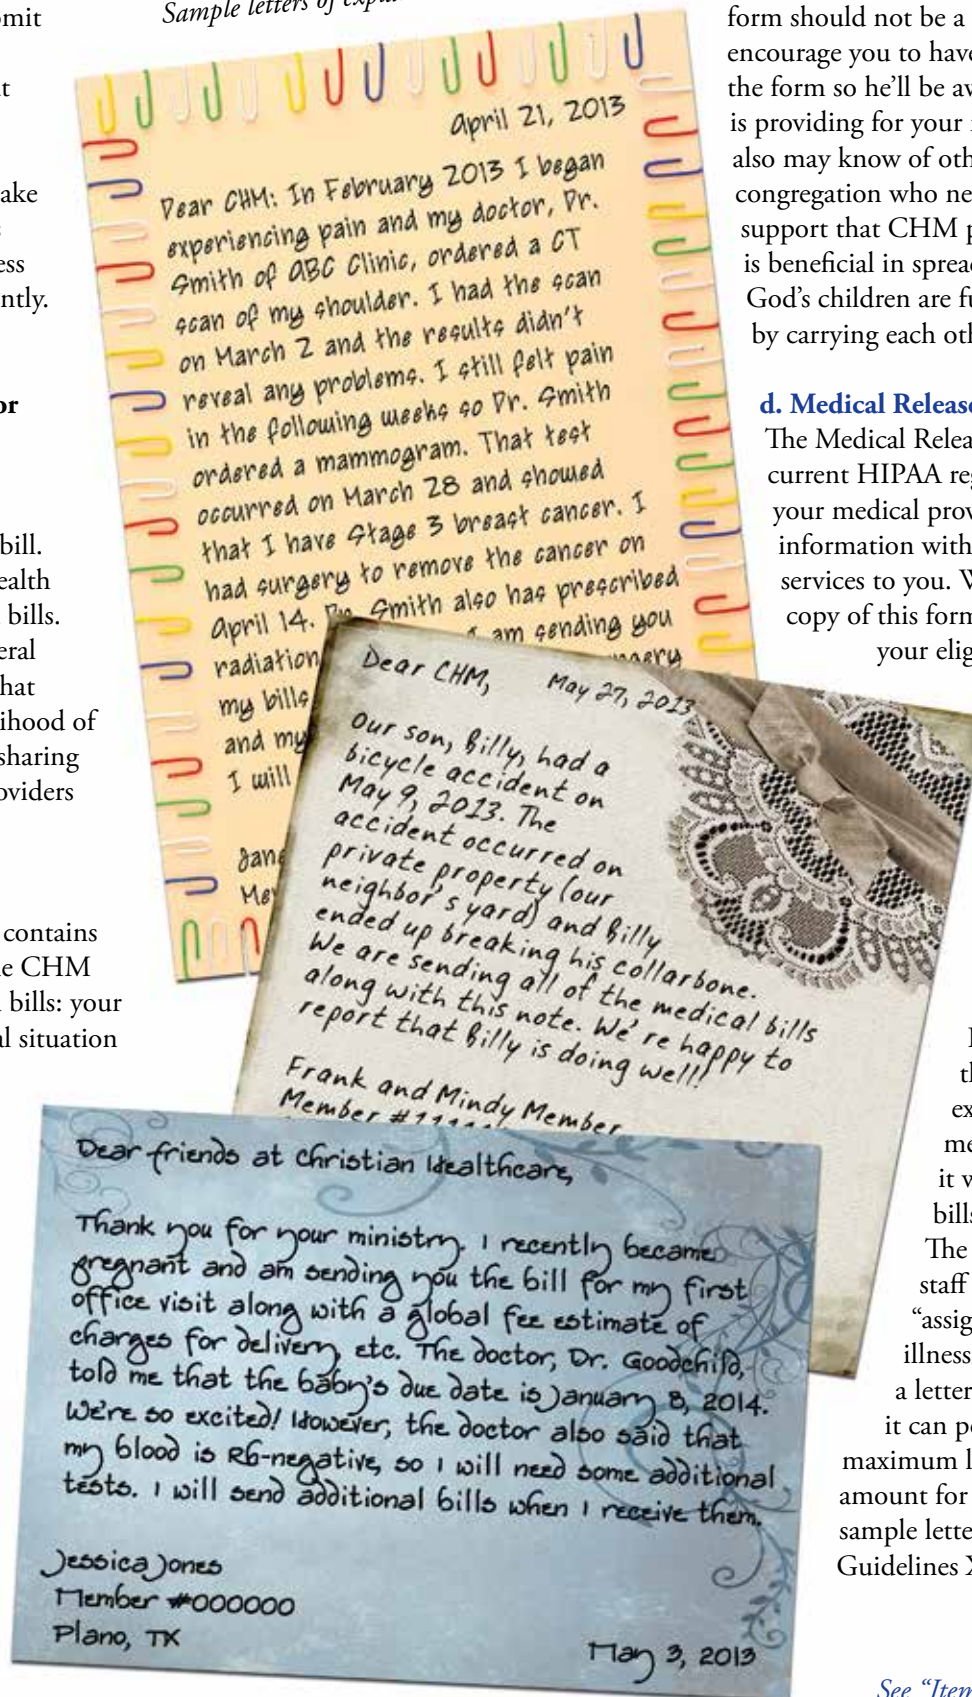 omit
ake
ess
ntly.
or
bill.
ealth
bills.
eral
hat
lihood of
sharing
oviders
contains
e CHM
bills: your
al situation
Sample letters of
April 21, 2013
Dear CHM: In February 2013 I began
experiencing pain and my doctor, Dr.
Smith of ABC Clinic, ordered a CT
scan of my shoulder. I had the scan
on March 2 and the results didn't
reveal any problems. I still felt pain
in the following weeks so Dr. Smith
ordered a mammogram. That test
occurred on March 28 and showed
that I have Stage 3 breast cancer. I
had surgery to remove the cancer on
April 14. Dr. Smith also has prescribed
radiation I am sending you
my bills
and my
I will
Dear CHM,
May 27, 2013
Our son, Billy, had a
bicycle accident on
May 9, 2013. The
accident occurred on
private property (our
neighbor's yard) and Billy
ended up breaking his collarbone.
We are sending all of the medical bills
along with this note. We're happy to
report that Billy is doing well!
Frank and Mindy Member
Member
Dear friends at Christian Healthcare,
Thank you for your ministry. I recently became
pregnant and am sending you the bill for my first
office visit along with a global fee estimate of
charges for delivery, etc. The doctor, Dr. Goodchild,
told me that the baby's due date is January 8, 2014.
We're so excited! However, the doctor also said that
my blood is Rh-negative, so I will need some additional
tests. I will send additional bills when I receive them.
Jessica Jones
Member #000000
Plano, TX
May 3, 2013
form should not be a
encourage you to have
the form so he'll be av
is providing for your
also may know of oth
congregation who ne
support that CHM p
is beneficial in sprea
God's children are fu
by carrying each oth
d. Medical Release
The Medical Relea
current HIPAA reg
your medical prov
information with
services to you. W
copy of this form
your elig
th
ex
me
it w
bills
The
staff
"assig
illness
a letter
it can p
maximum l
amount for
sample lette
Guidelines X
See "Item